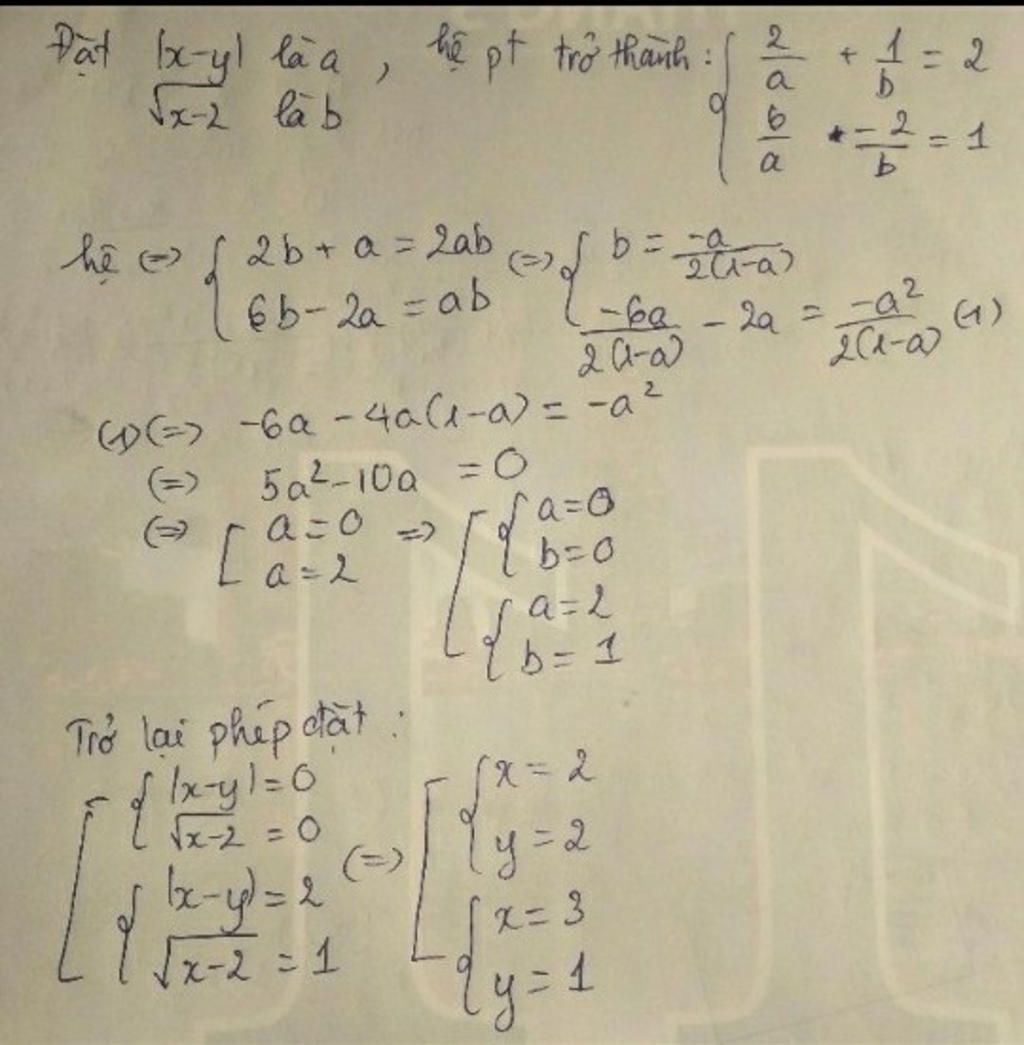 Đặt |x-y| là a , hệ pt trở thành : { 2/a + 1/b = 2
√x-2 là b
6/a - 2/b = 1
hệ (=) { 2b + a = 2ab (=) { b = -a/2(1-a)
6b - 2a = ab
-6a/2(1-a) - 2a = -a²/2(1-a) (1)
(1) (=) -6a - 4a(1-a) = -a²
(=) 5a² - 10a = 0
(=) [ a = 0 => [ { a = 0
a = 2
b = 0
{ a = 2
b = 1
Trở lại phép đặt :
[ { |x-y| = 0
√x-2 = 0
{ |x-y| = 2
√x-2 = 1
(=) [ { x = 2
y = 2
{ x = 3
y = 1